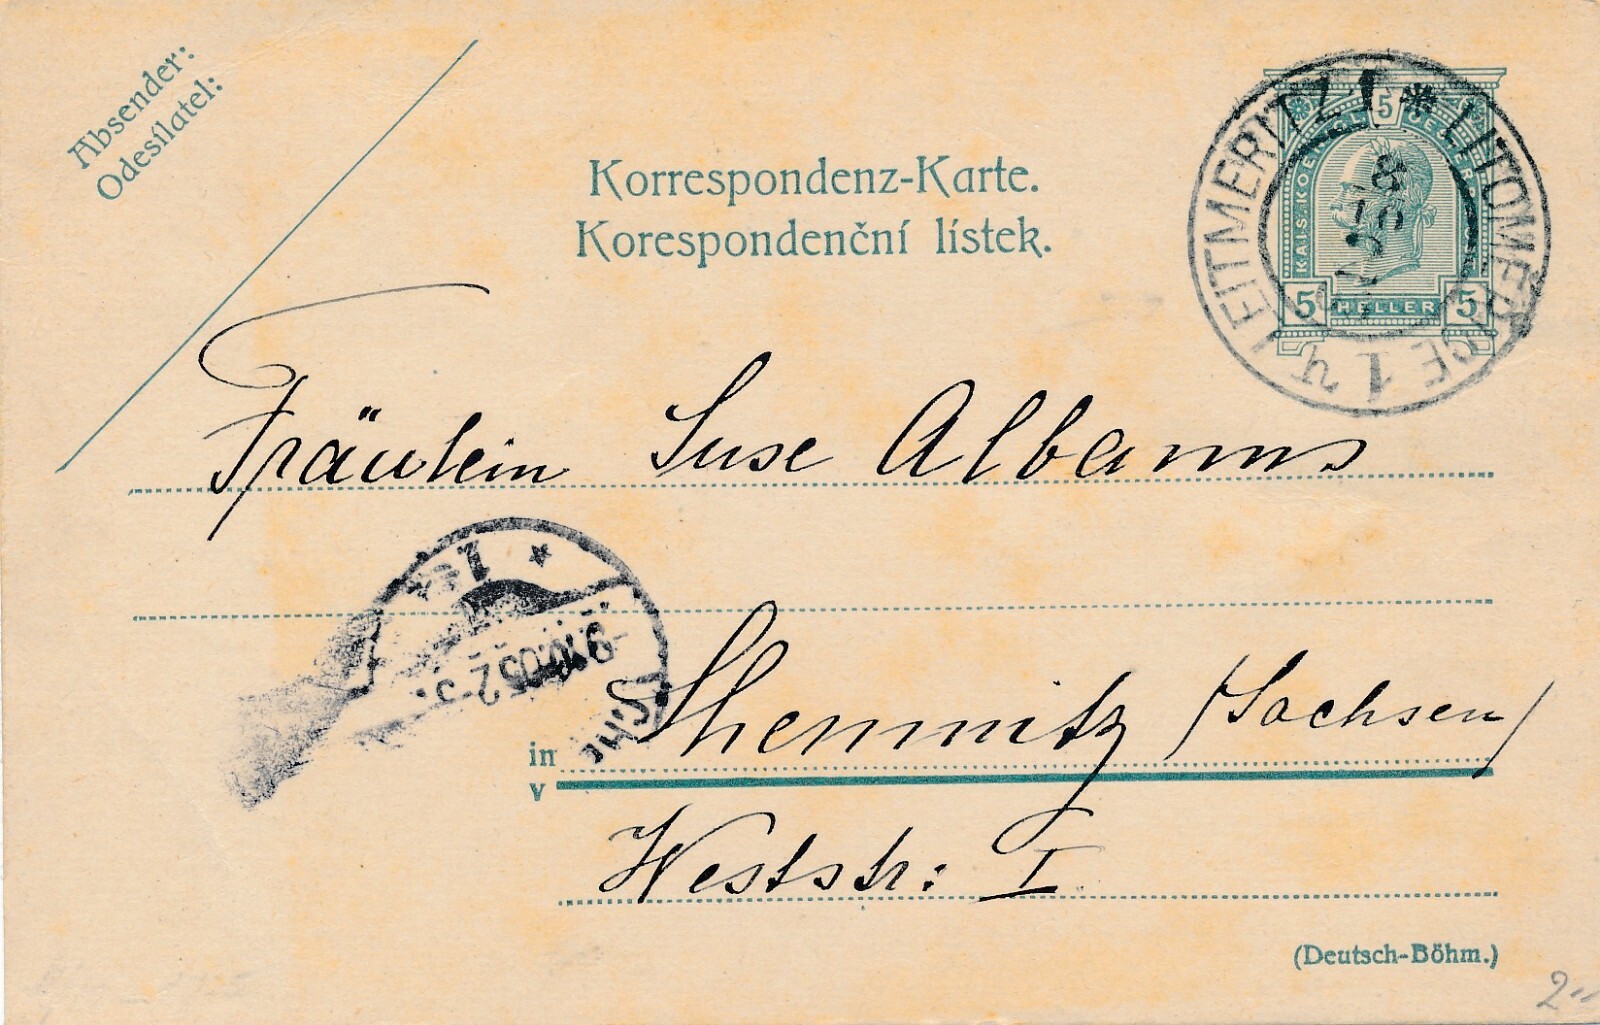 Absender:
Odesílatel:
Korrespondenz-Karte.
Korespondenční lístek.
LEITMERITZ 1 * LITOMĚŘICE 1
8 10
5
KAIS. KOENIGL. OESTERR. POST
5 HELLER 5
Fräulein Suse Albanus
* 1
-9.10.05.2-3.
Chemnitz /Sachsen/
in
v
Weststr: I
(Deutsch-Böhm.)
2